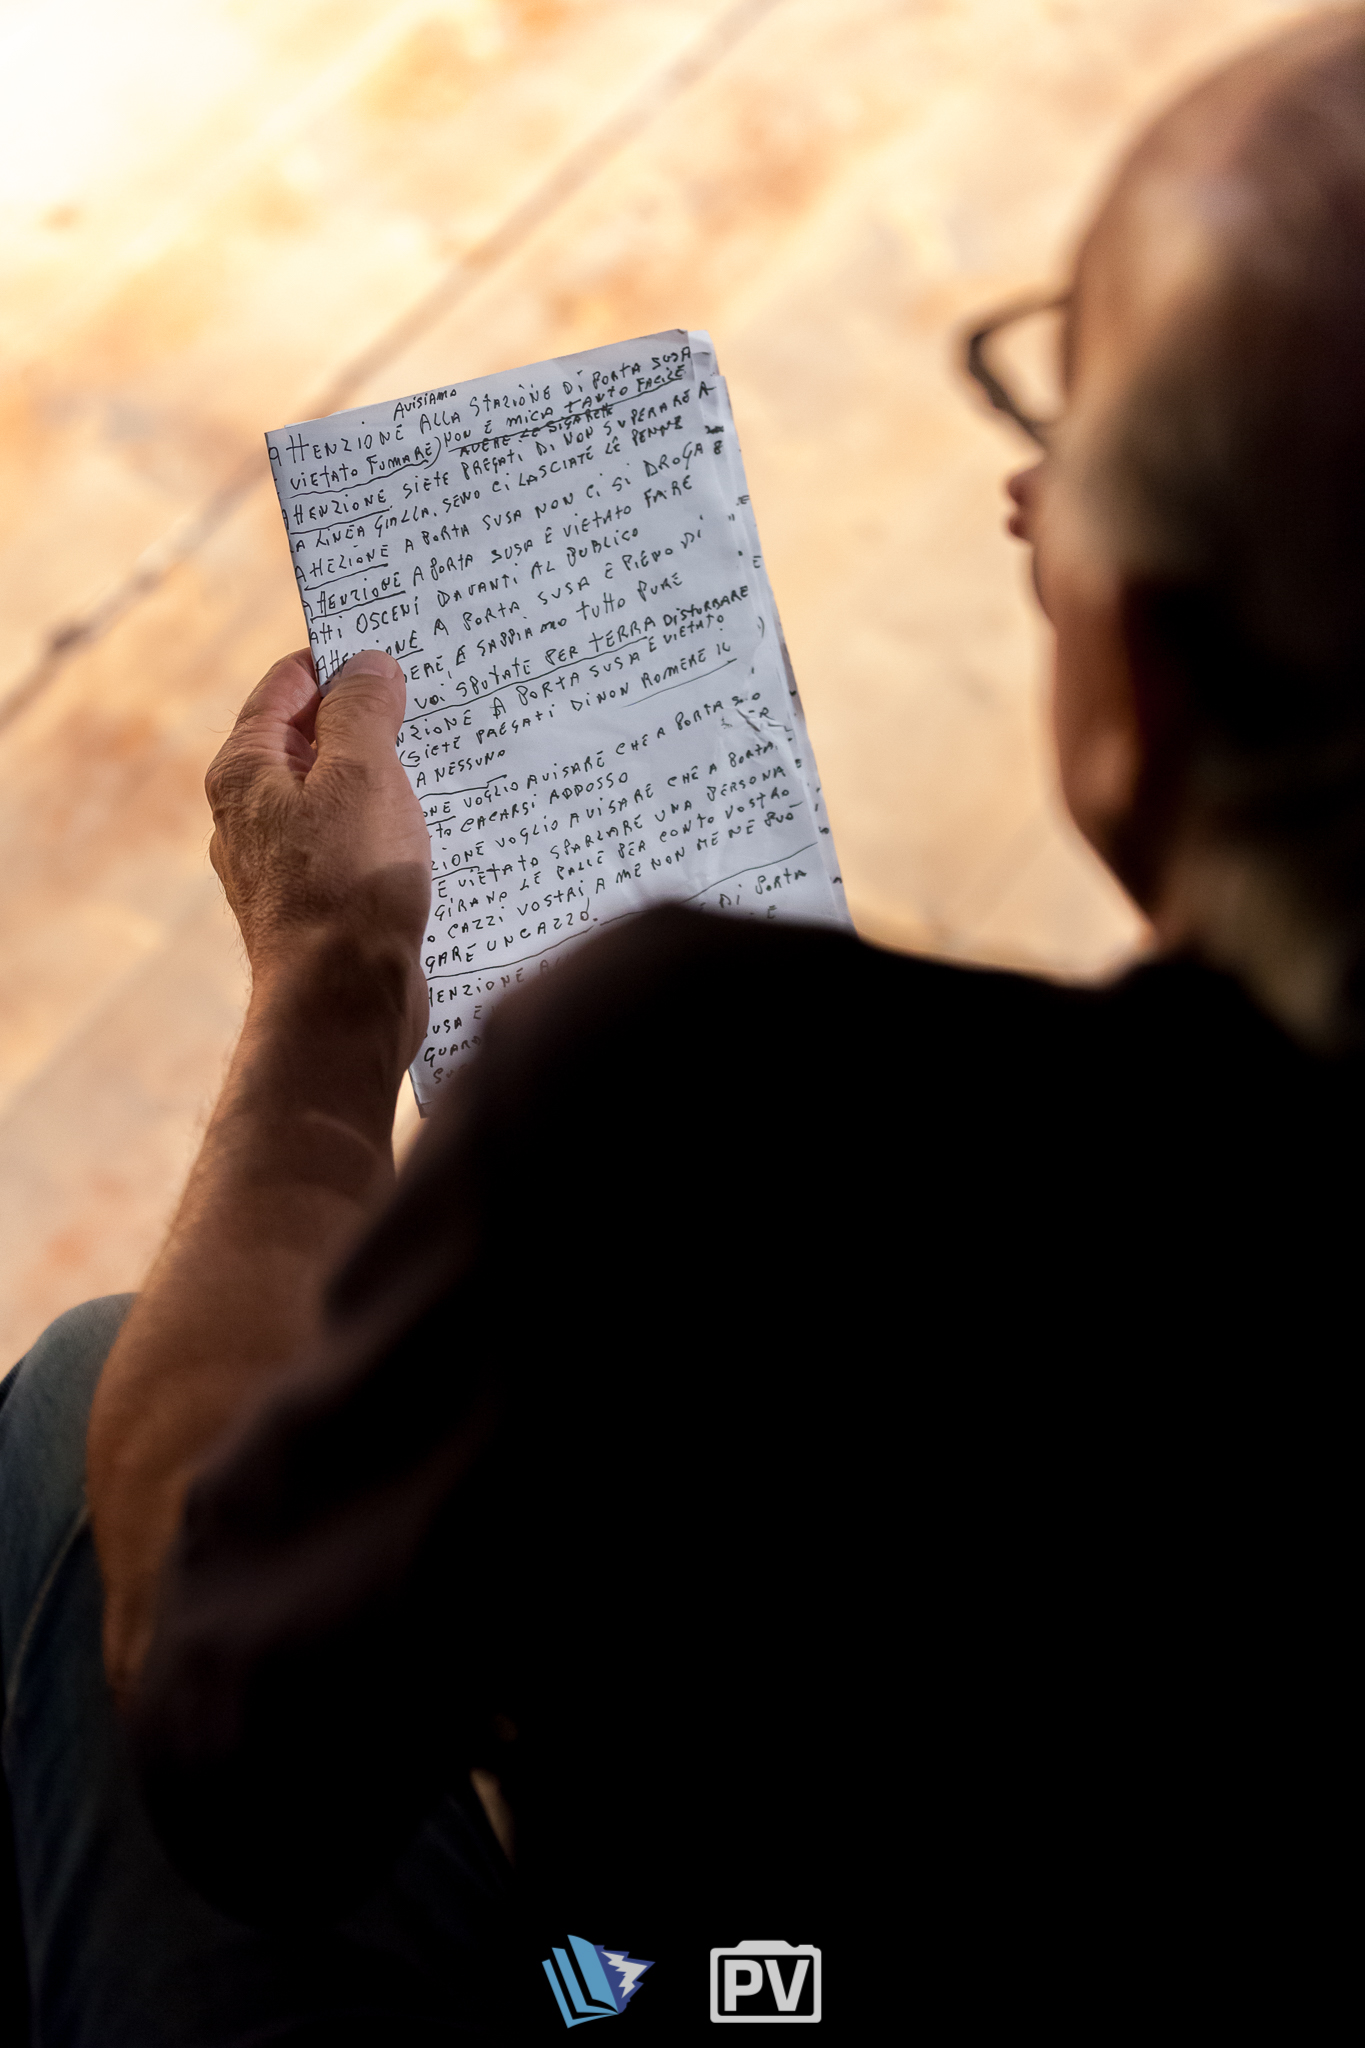 AVISIAMO
ATTENZIONE ALLA STAZIONE DI PORTA SUSA
VIETATO FUMARE) NON È MICA TANTO FACILE
AVERE LE SIGARETE
ATTENZIONE SIETE PREGATI DI NON SUPERARE A-
LA LINEA GIALLA. SENO CI LASCIATE LE PENNE
ATTEZIONE A PORTA SUSA NON CI SI DROGA E
ATTENZIONE A PORTA SUSA È VIETATO FAIRE
ATTI OSCENI DAVANTI AL PUBLICO
ATTENZIONE A PORTA SUSA È PIENO DI
DERE E SAPPIAMO TUTTO PURE
VOI SPUTATE PER TERRA DISTURBARE
NZIONE A PORTA SUSA È VIETATO
(SIETE PREGATI DI NON ROMERE IL
A NESSUNO
ONE VOGLIO AVISARE CHE A PORTA
TO CACARSI ADDOSSO
ZIONE VOGLIO AVISARE CHE A PORTA
E VIETATO SPARLARE UNA PERSONA
GIRANO LE PALLE PER CONTO VOSTRO
O CAZZI VOSTRI A ME NON ME NE PUÒ
GARE UN CAZZO.
DI PORTA
TENZIONE
SUSA È
GUARD
PV